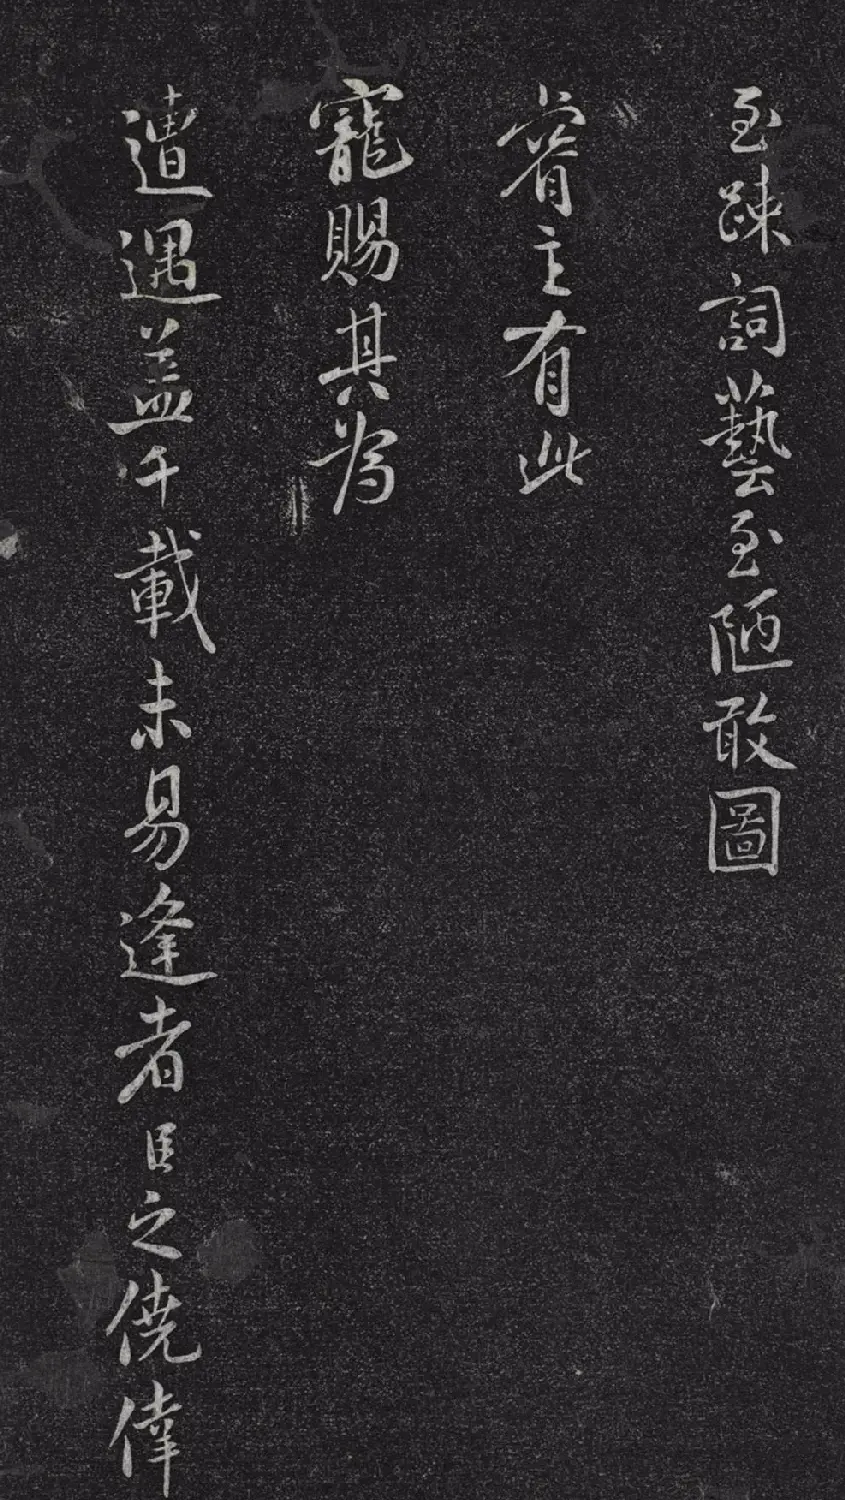 至踈詞藝至陋敢圖
睿主有此
寵賜其為
遭遇盖千載未易逢者臣之僥倖